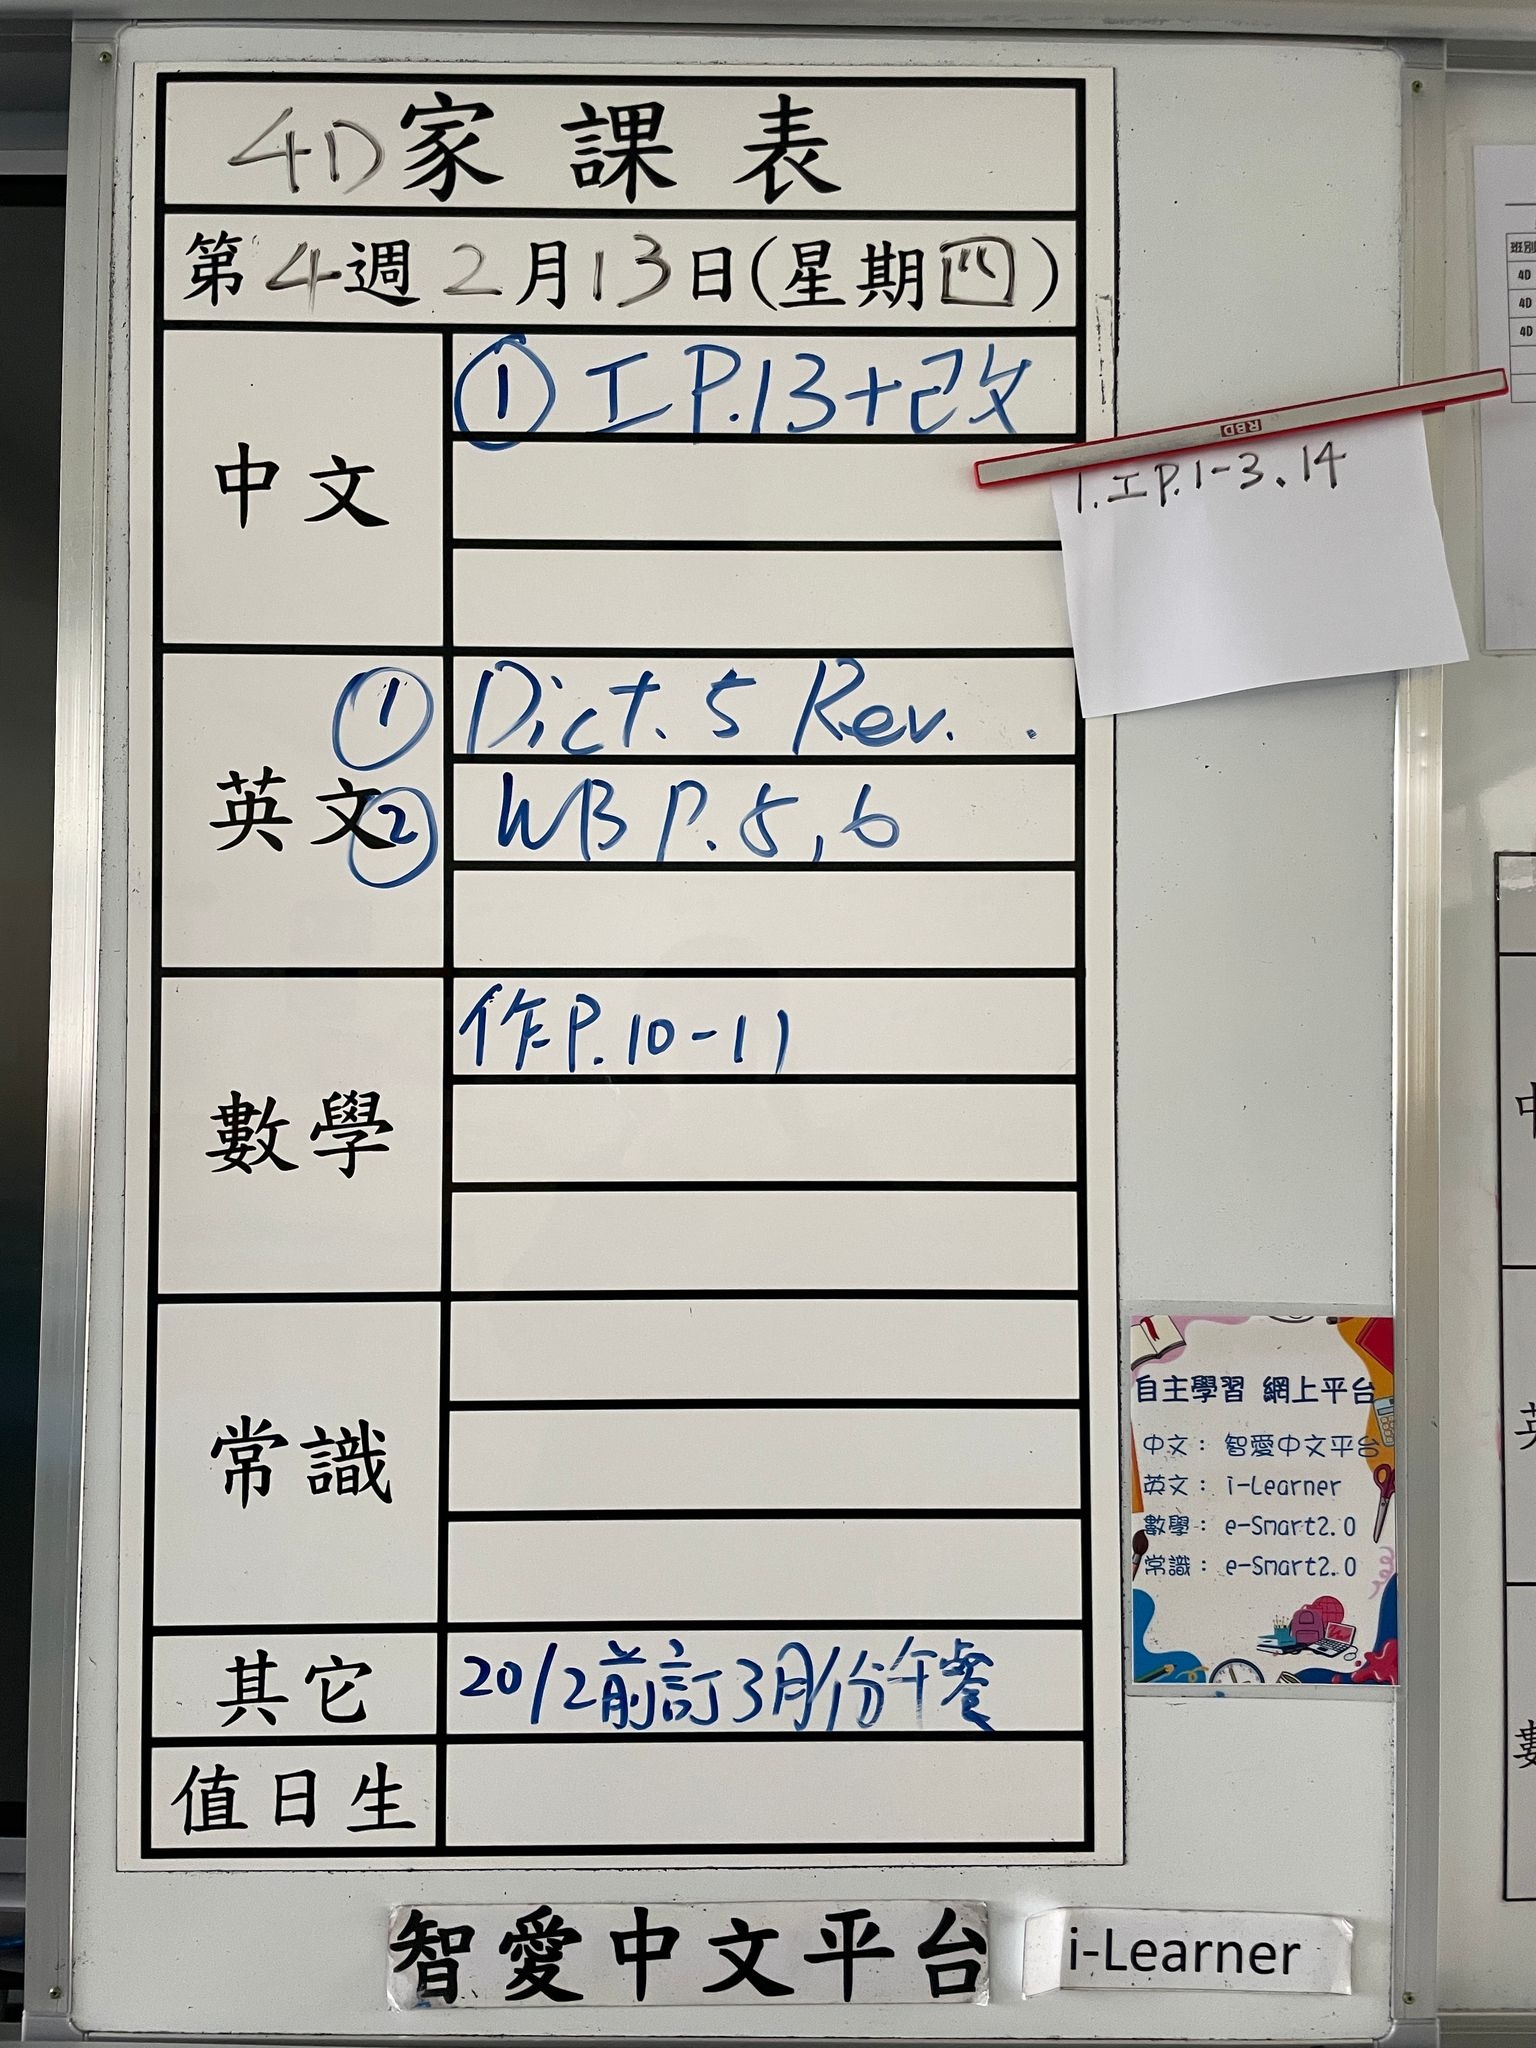 4D家課表
第4週2月13日(星期四)
中文
① 工P.13+改
1.工P.1-3、14
英文
① Dict. 5 Rev.
② WB P.5,6
數學
作P.10-11
常識
其它
20/2前訂3月份午餐
值日生
自主學習 網上平台
中文：智愛中文平台
英文：i-Learner
數學：e-Smart2.0
常識：e-Smart2.0
智愛中文平台
i-Learner
班別
4D
4D
4D